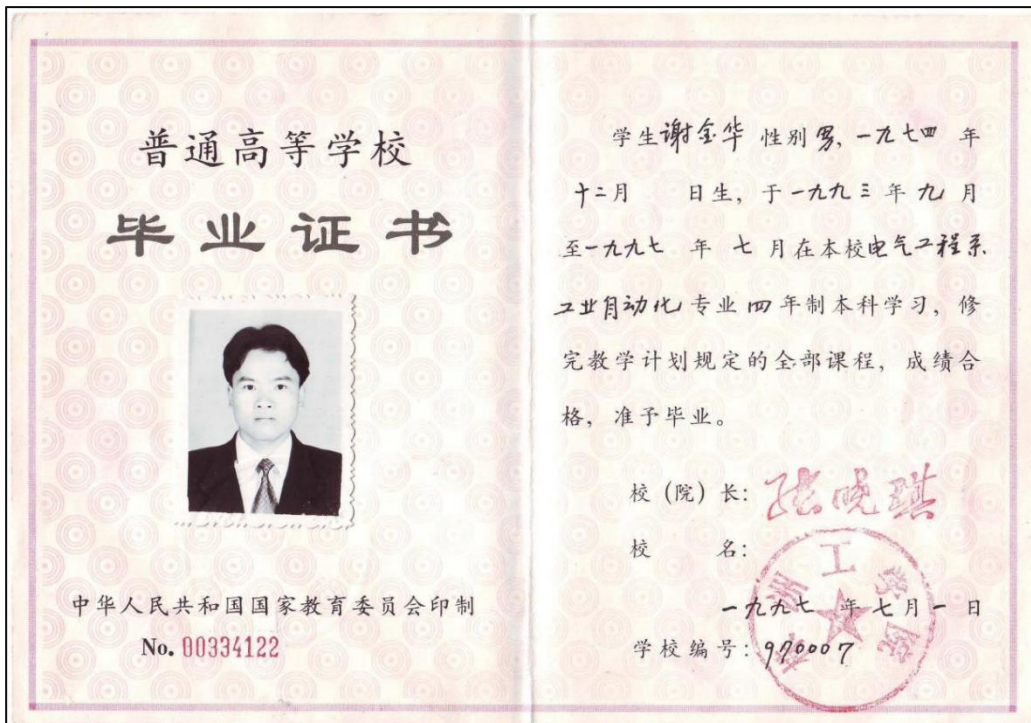 普通高等学校
毕业证书
中华人民共和国国家教育委员会印制
No. 00334122
学生谢金华 性别男,一九七四 年
十二月 日生, 于一九九三年九月
至一九九七 年 七月在本校电气工程系
工业自动化专业四年制本科学习, 修
完教学计划规定的全部课程, 成绩合
格, 准予毕业。
校(院)长: 张晓琪
校 名:
一九九七 年七月一日
学校编号: 970007